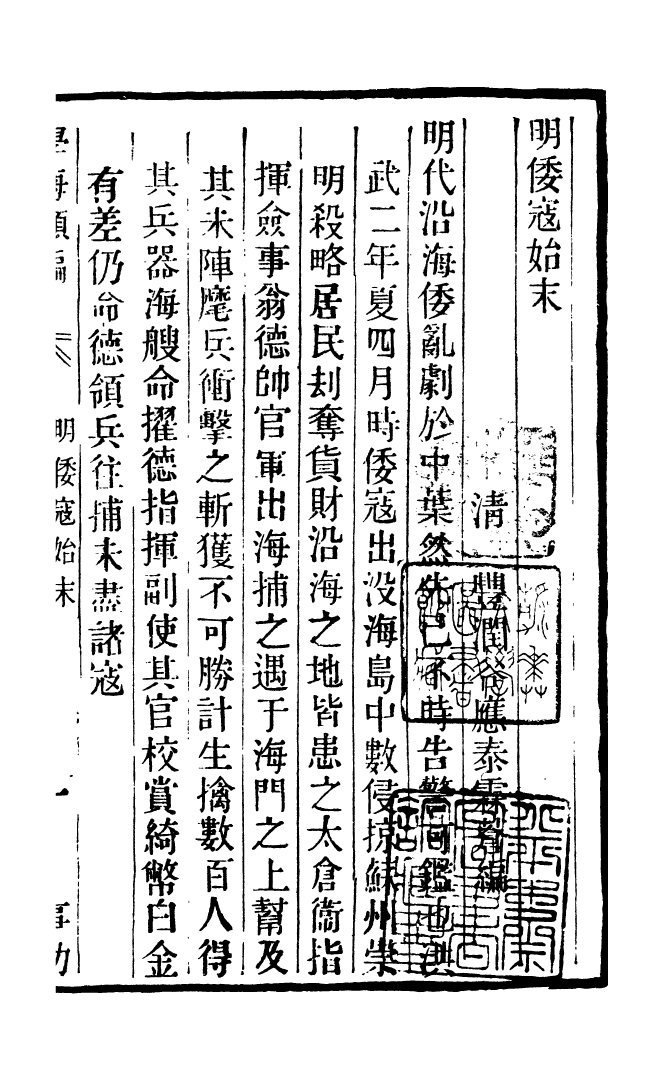 明倭寇始末
清　豐潤谷應泰霖蒼編
明代沿海倭亂劇於中葉然先已不時告警可鑑也洪
武二年夏四月時倭寇出没海島中數侵掠蘇州崇
明殺略居民刦奪貨財沿海之地皆患之太倉衞指
揮僉事翁德帥官軍出海捕之遇于海門之上幫及
其未陣麾兵衝擊之斬獲不可勝計生擒數百人得
其兵器海艘命擢德指揮副使其官校賞綺幣白金
有差仍命德領兵往捕未盡諸寇
學海類編　明倭寇始末　一　事功